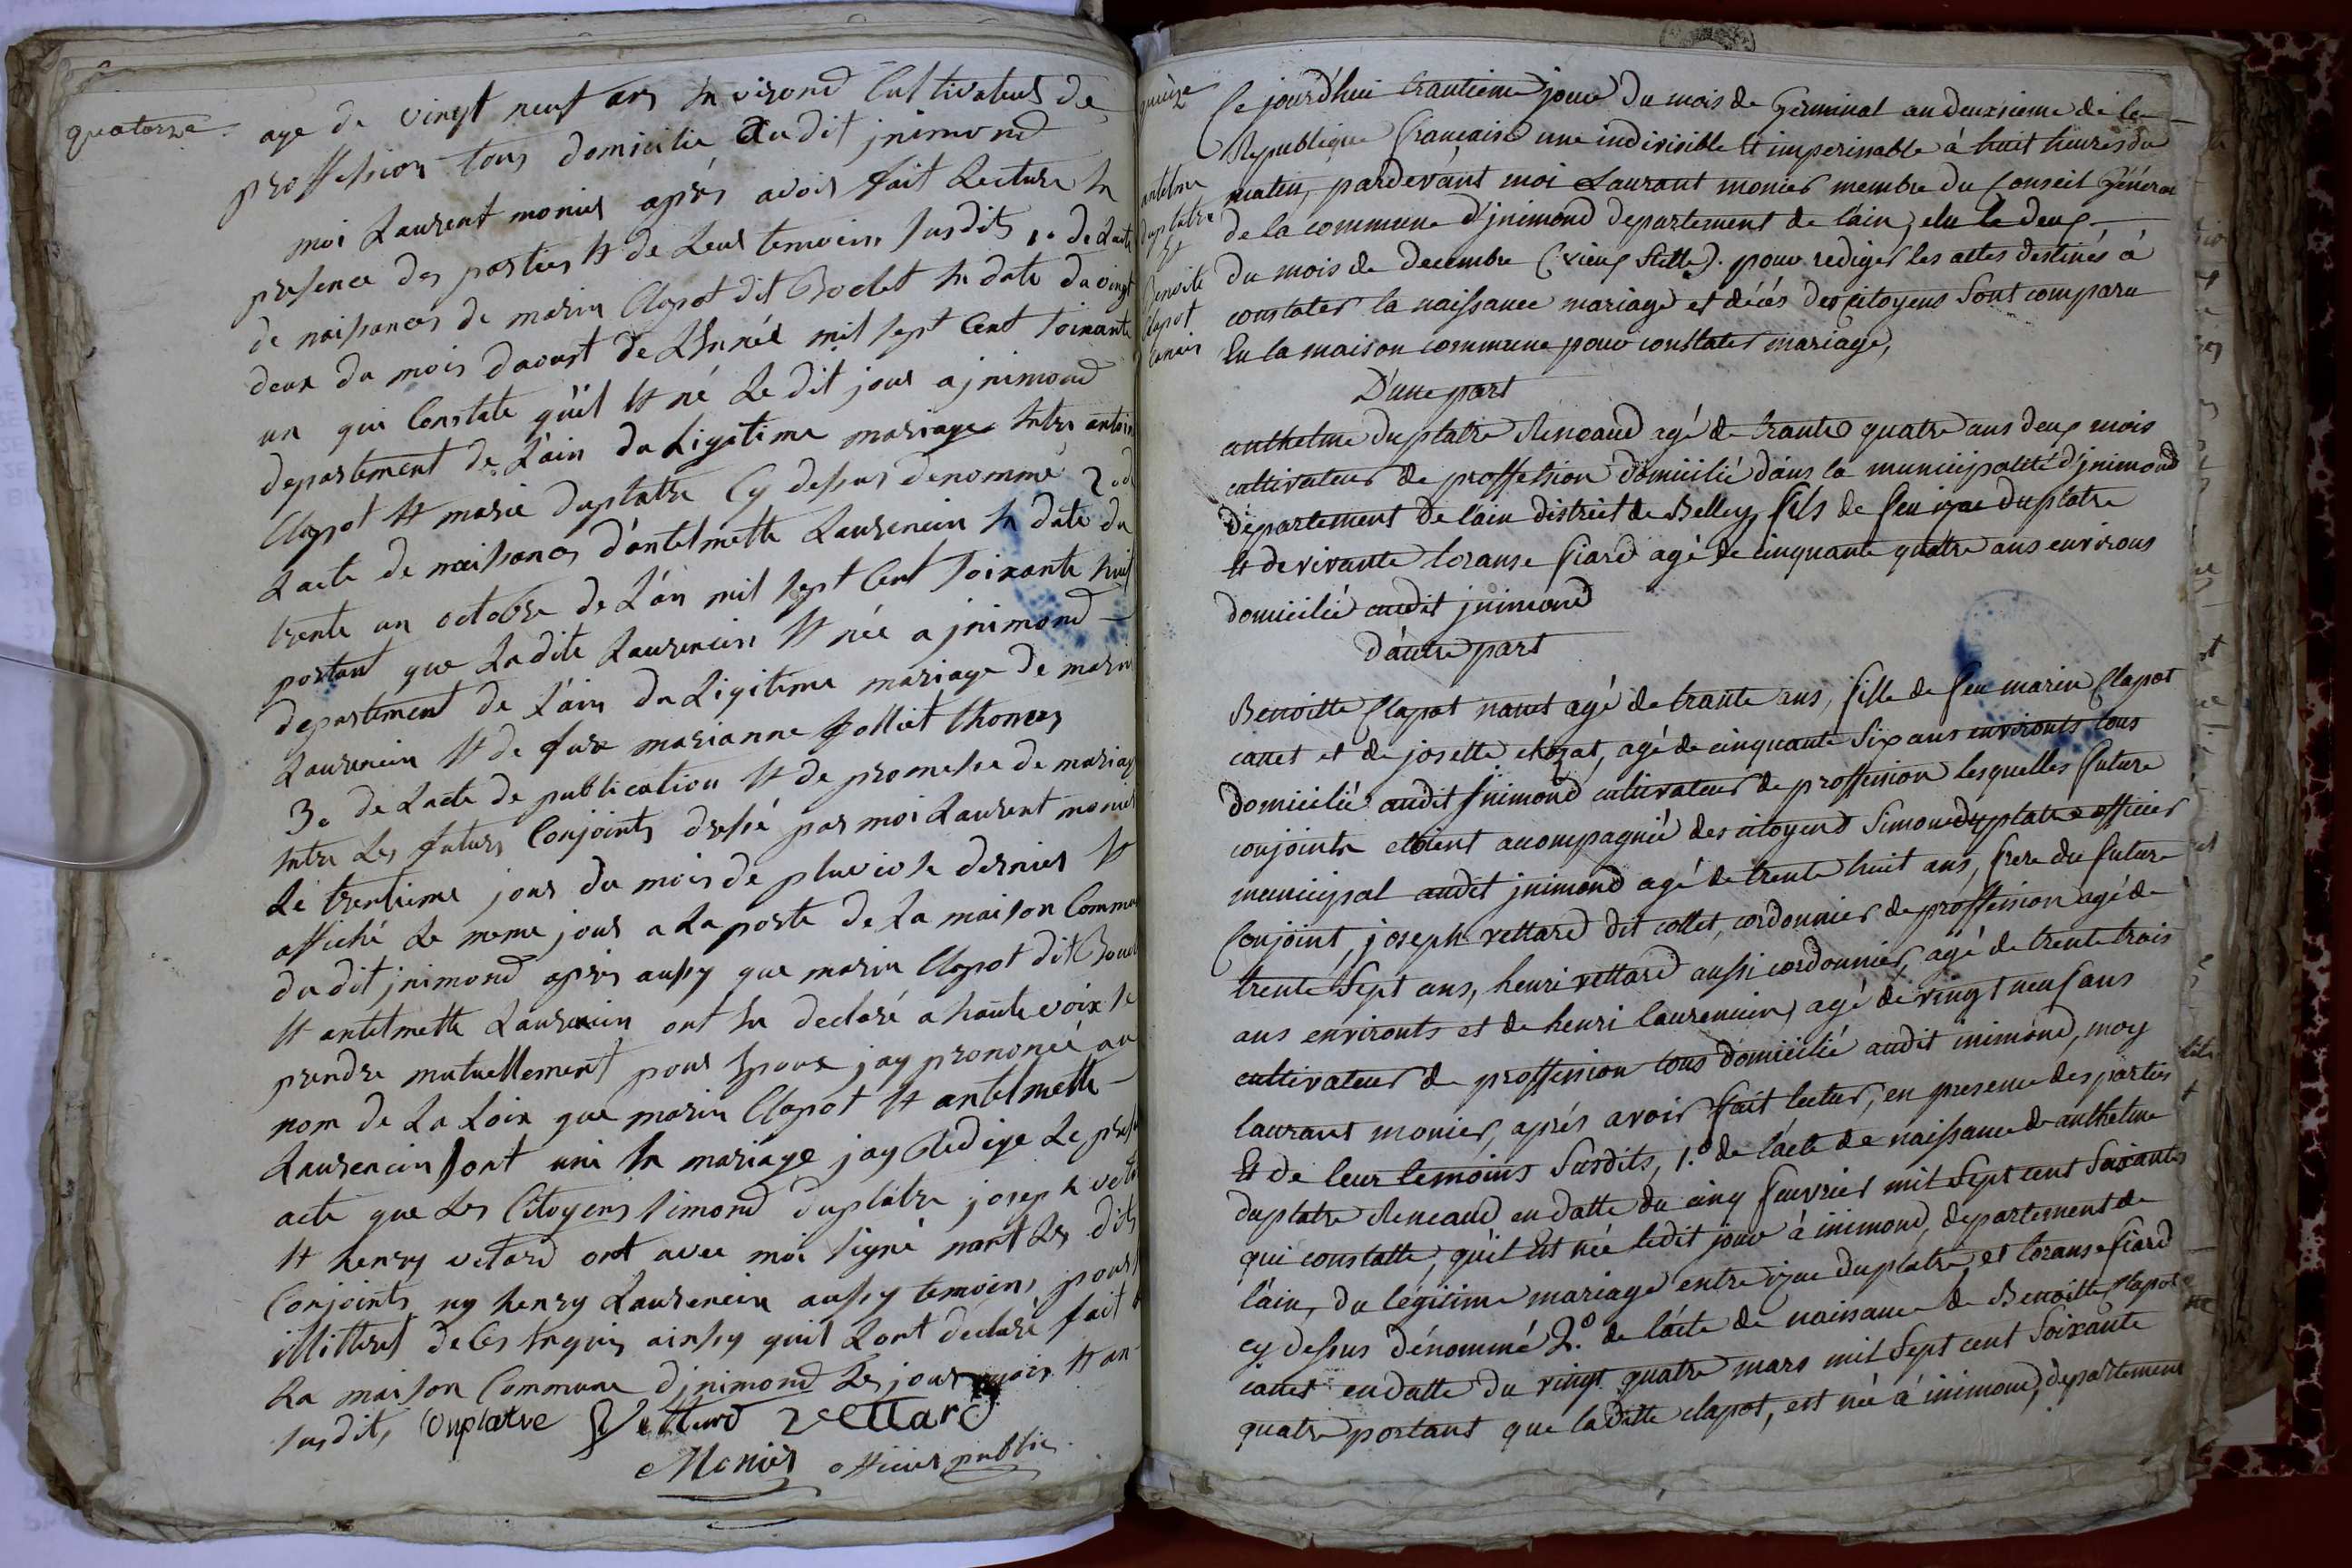 quatorze
age de vingt neuf ans en virond Cultivateurs de
proffession tous domicilie audit jnimond
moi Laurent monier aprés avoir fait Lecture en
presence des parties et de Leur temoins susdits 1° de Lacte
de naissances de marin Clapot dit Bodet en date du vingt
deux du mois daoust de Lennée mil sept Cent soixante
un qui Constate qu'il et né Le dit jour a jnimond
departement de L'ain du Ligetime mariage entre antoin
Clapot et marie duplatre Cy dessus denommé 2° de
Lacte de naissances d'antelmette Laurencin en date du
trente un octobre de L'an mil sept Cent soixante huit
portant que Ladite Laurencin et née a jnimond
departement de L'ain du Ligitime mariage de marin
Laurencin et de fure marianne folliet thomas
3° de Lacte de publication et de promesse de mariag
entre Les futurs Conjoints dressé par moi Laurent monier
Le trentieme jour du mois de pluviose dernier et
affiché Le meme jour a La porte de La maison Commu
du dit jnimond aprés aussy que marin Clapot dit
et antelmette Laurencin ont en declaré a haute voix se
prendre mutuellement pour epoux jay prononcé au
nom de La Loix que marin Clapot et antelmette
Laurencin sont uni en mariage jay Redige Le pres
acte que Les Citoyens simond duplatre joseph vet
et henry vetard ont avec moi signé nant Les dits
Conjoints ny henry Laurencin aussy temoins pour
illitteres de Ces enquis ainssy quil Lont declaré fait
La maison Commune djnimond Les jour mois et an
susdit, Duplatre Vettard vettard
Monier officier public
quinze
antelme
duplatre
et
Benoite
Clapot
Canier
Ce jourd'hui trantieme jour du mois de Germinal an deuxsieme de le
Republique francaise une indivisible et imperissable à huit heures du
matin, pardevant moi Laurant monier membre du Conseil Général
de la commune d'jnimond departement de l'ain, elu le deux
du mois de decembre (vieux stille). pour rediger les actes destinés á
constater la naissance mariage et décés des citoyens sont comparu
En la maison commune pour constater mariage,
D'une part
anthelme duplatre Reneaud agé de trante quatre ans deux mois
cultivateur de proffession domicilié dans la municipalité d'jnimond
departement de l'ain district de Belley, fils de feu izac duplatre
et de vivante loranse fiard agé de cinquante quatre ans environs
domicilié audit jnimond
d'autre part
Benoitte Clapot nauet agé de trante ans, fille de feu marin Clapot
canet et de josette chozat, agé de cinquante six ans environts tous
domicilié audit jnimond cultivateur de proffession lesquelles future
conjoints etoient acompagnié des citoyens Simond duplatre officier
municipal audit jnimond agé de trente huit ans, frere du future
Conjoint, joseph vettard dit collet, cordonnier de proffession agé de
trente sept ans, henri vettard aussi cordonnier, agé de trente trois
ans environts et de henri laurencin, agé de vingt neuf ans
cultivateur de proffession tous domicilié audit inimond, moy
laurant monier, aprés avoir fait lectur, en presence des parties
Et de leur temoins susdits, 1.° de l'acte de naissance de anthelme
duplatre Reneaud en datte du cinq feuvrier mil sept cent soixante
qui constatte, qu'il est née ledit jour á inimond, departement de
l'ain, du legitime mariage entre izac duplatre, et loranse fiard
cy dessus dénommé 2.° de l'acte de naissance de Benoitte Clapot
canet en datte du vingt quatre mars mil sept cent soixante
quatre portant que la ditte clapot, est née á inimond, departement